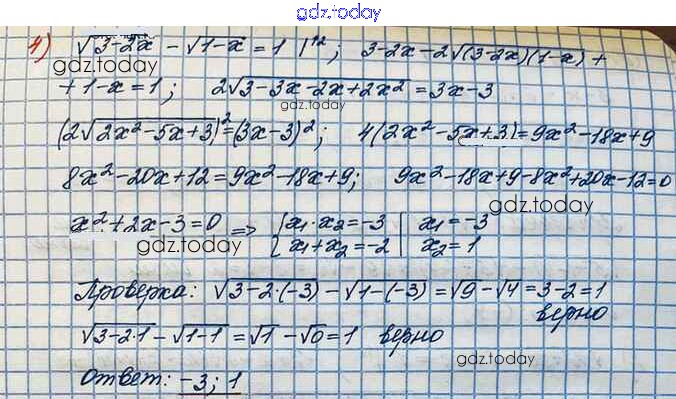 gdz.today
4) √(3-2x) - √(1-x) = 1 |↑²; 3-2x-2√((3-2x)(1-x)) +
gdz.today
+ 1-x = 1; 2√(3-3x-2x+2x²) = 3x-3
gdz.today
(2√(2x²-5x+3))² = (3x-3)²; 4(2x²-5x+3) = 9x²-18x+9
gdz.today
8x²-20x+12 = 9x²-18x+9; 9x²-18x+9-8x²+20x-12=0
gdz.today
x²+2x-3=0 => { x₁·x₂=-3 | x₁=-3
{ x₁+x₂=-2 | x₂=1
gdz.today
Проверка: √(3-2·(-3)) - √(1-(-3)) = √9 - √4 = 3-2 = 1
верно
√(3-2·1) - √(1-1) = √1 - √0 = 1 верно
gdz.today
Ответ: -3; 1